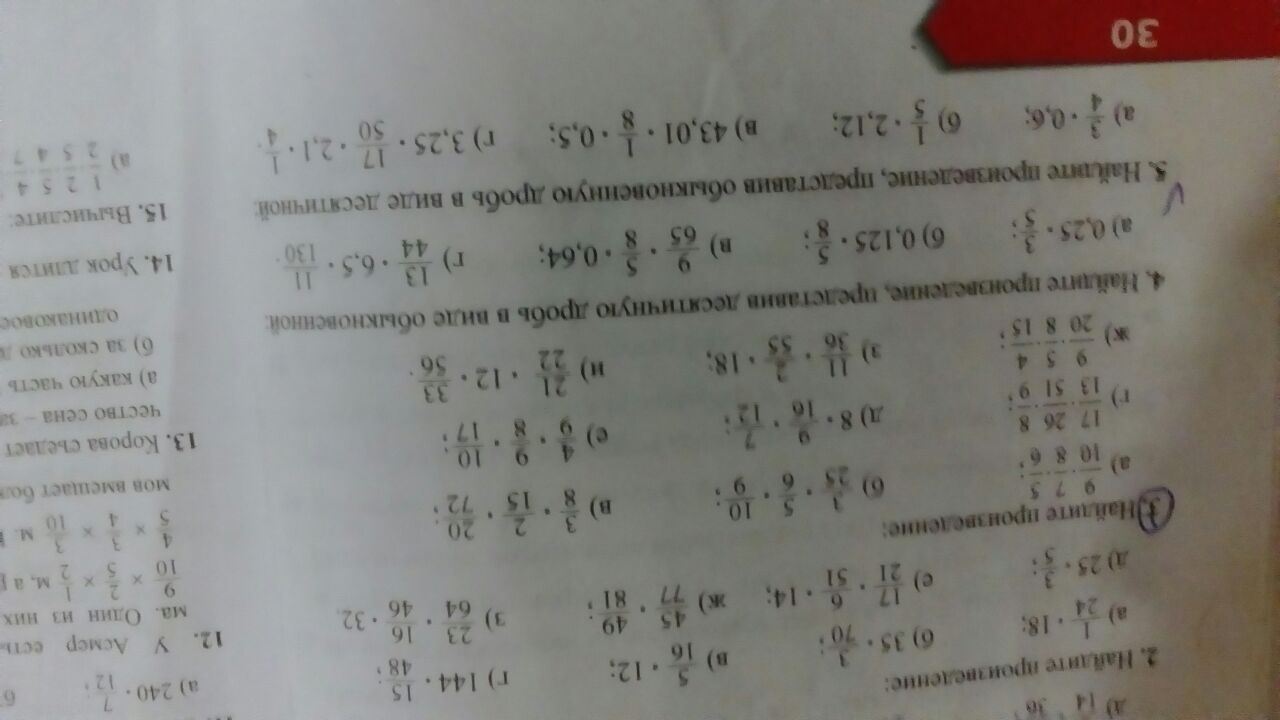 2. Найдите произведение:
а) 1/24 · 18; б) 35 · 3/70; в) 5/16 · 12; г) 144 · 15/48;
д) 25 · 3/5; е) 17/21 · 6/51 · 14; ж) 45/77 · 49/81; з) 23/64 · 16/46 · 32.
3. Найдите произведение:
а) 9/10 · 7/8 · 5/6; б) 3/25 · 5/6 · 10/9; в) 3/8 · 2/15 · 20/72;
г) 17/13 · 26/51 · 8/9; д) 8 · 9/16 · 7/12; е) 4/9 · 9/8 · 10/17;
ж) 9/20 · 5/8 · 4/15; з) 11/36 · 2/55 · 18; и) 21/22 · 12 · 33/56.
4. Найдите произведение, представив десятичную дробь в виде обыкновенной:
а) 0,25 · 3/5; б) 0,125 · 5/8; в) 9/65 · 5/8 · 0,64; г) 13/44 · 6,5 · 11/130.
5. Найдите произведение, представив обыкновенную дробь в виде десятичной:
а) 3/4 · 0,6; б) 1/5 · 2,12; в) 43,01 · 1/8 · 0,5; г) 3,25 · 17/50 · 2,1 · 1/4.
30
а) 240 · 7/12;
12. У Асмер есть
ма. Один из них
9/10 × 2/5 × 1/2 м, а
4/5 × 3/4 × 3/10 м.
мов вмещает
13. Корова съедает
чество сена –
а) какую часть
б) за сколько
одинаковое
14. Урок длится
15. Вычислите:
а) 1/2 2/5 5/4 4/7